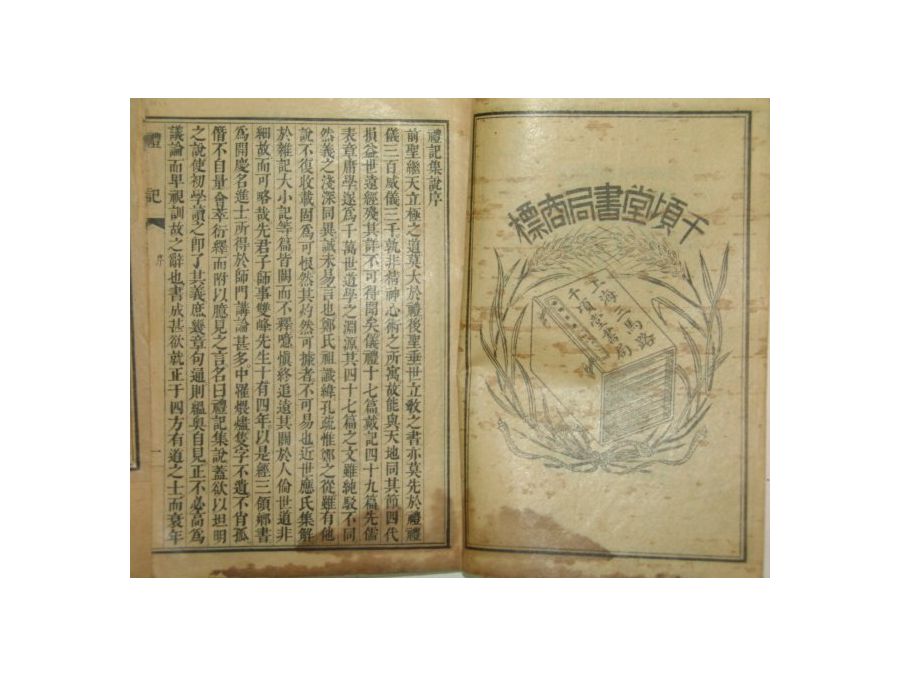 千頃堂書局商標
上海三馬路
千頃堂書局
禮記集說序
前聖繼天立極之道莫大於禮後聖垂世立敎之書亦莫先於禮禮
儀三百威儀三千孰非精神心術之所寓故能與天地同其節四代
損益世遠經殘其詳不可得聞矣儀禮十七篇戴記四十九篇先儒
表章庸學遂爲千萬世道學之淵源其四十七篇之文雖純駁不同
然義之淺深同異誠未易言也鄭氏祖讖緯孔疏惟鄭之從雖有他
說不復收載固爲可恨然其灼然可據者不可易也近世應氏集解
於雜記大小記等篇皆闕而不釋噫愼終追遠其關於人倫世道非
細故而可略哉先君子師事雙峰先生十有四年以是經三領鄉書
爲開慶名進士所得於師門講論甚多中罹煨燼隻字不遺不肖孤
僭不自量會萃衍繹而附以臆見之言名曰禮記集說蓋欲以坦明
之說使初學讀之卽了其義庶幾章句通則蘊奧自見正不必高爲
議論而卑視訓故之辭也書成甚欲就正于四方有道之士而衰年
禮記
序
一